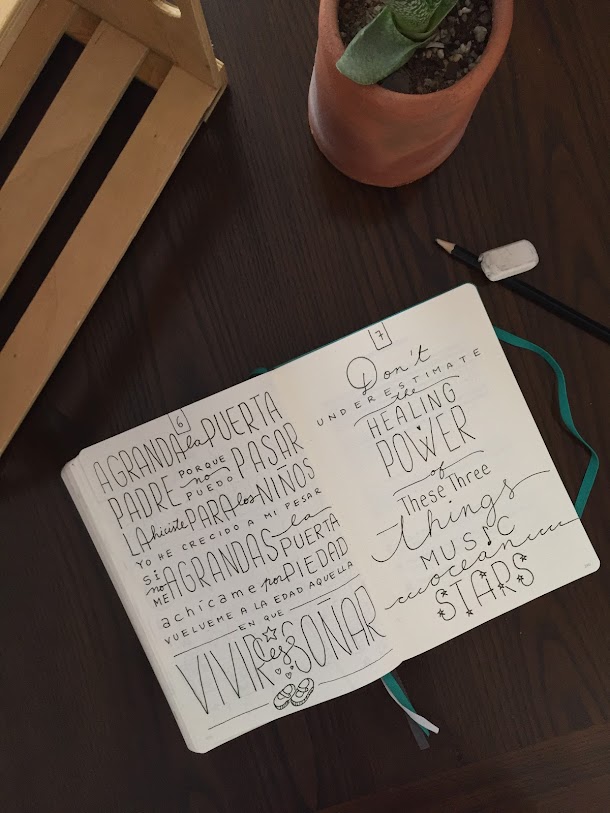 6
AGRANDA la PUERTA
PADRE PORQUE no PUEDO PASAR
LA hiciste PARA los NIÑOS
YO HE CRECIDO A MI PESAR
SI no ME AGRANDAS la PUERTA
achícame por PIEDAD
VUELUEME A LA EDAD AQUELLA
EN QUE
VIVIR es SOÑAR
7
Don't
UNDERESTIMATE
the
HEALING
POWER
of
These Three
things
MUSIC
ocean
STARS